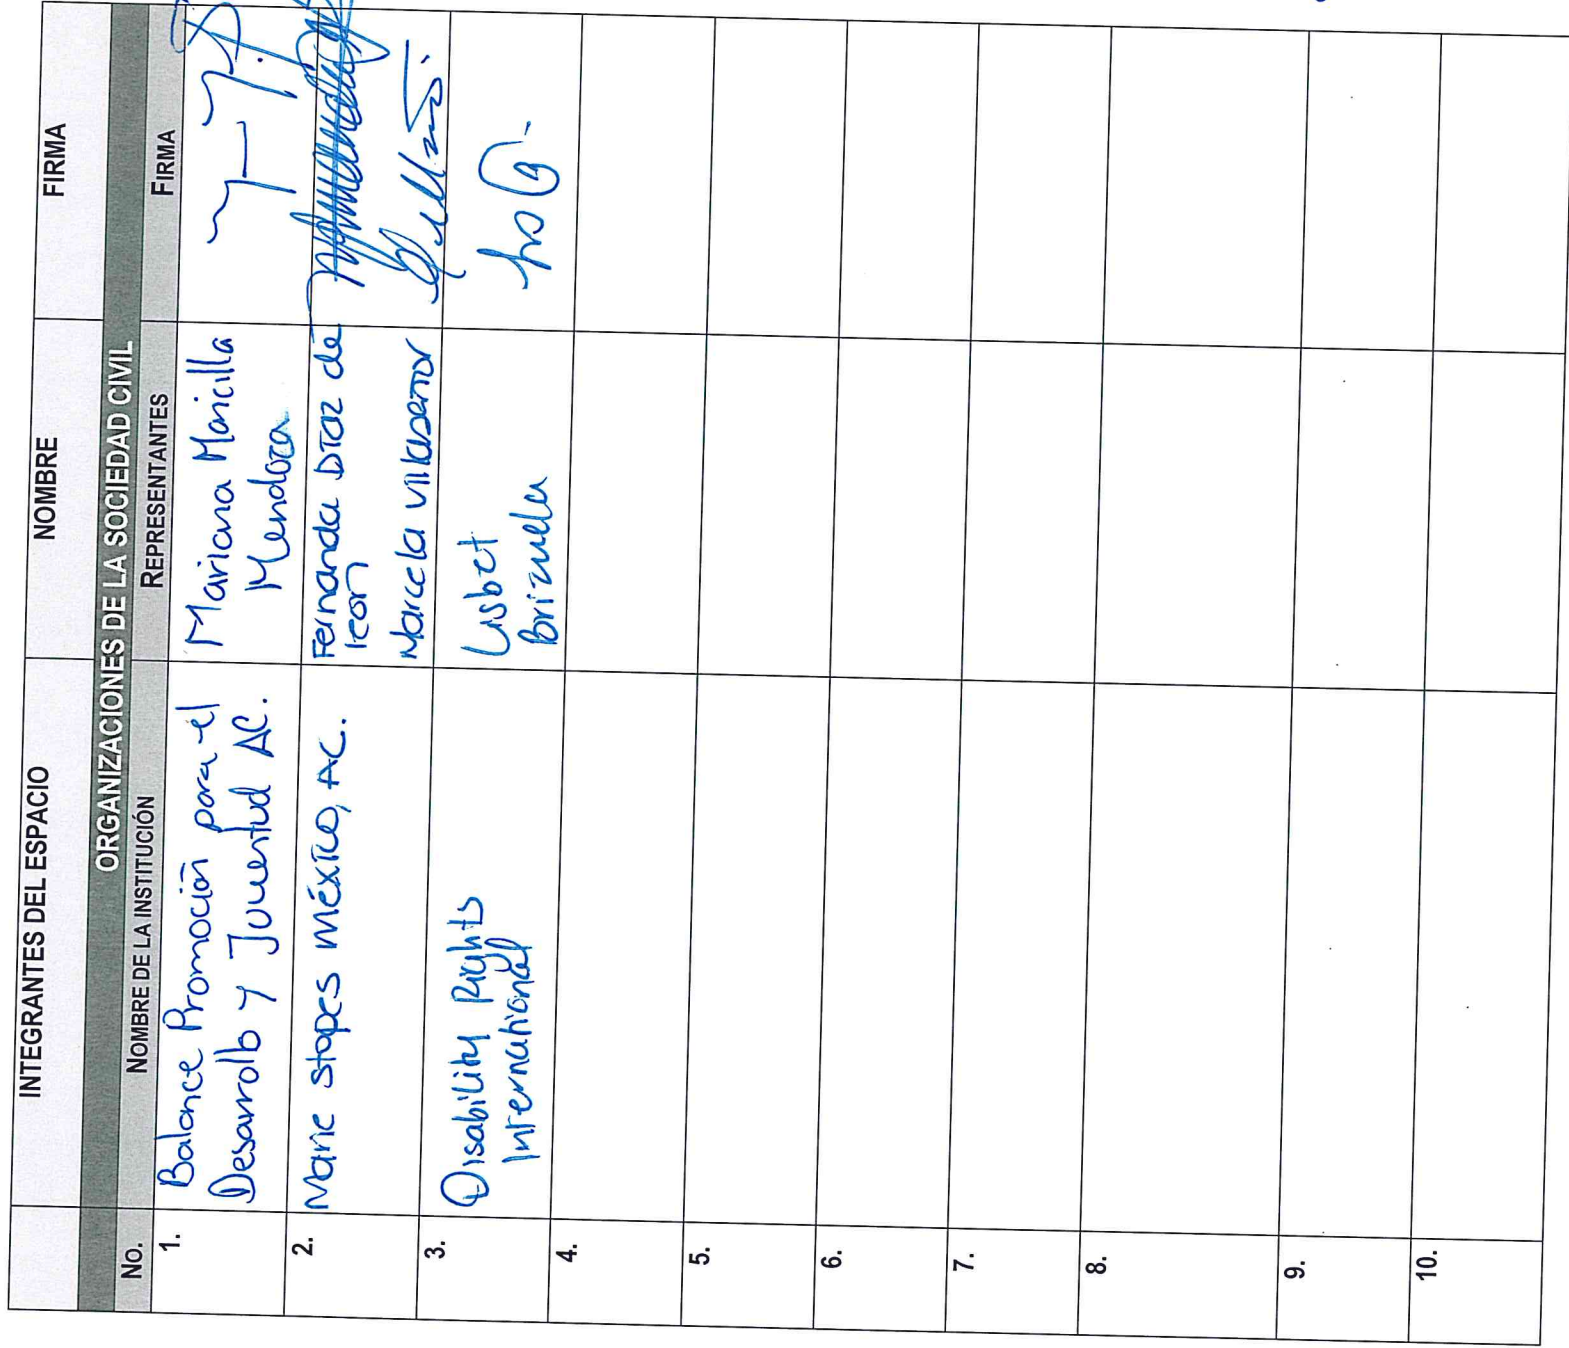 INTEGRANTES DEL ESPACIO NOMBRE FIRMA
ORGANIZACIONES DE LA SOCIEDAD CIVIL
No. NOMBRE DE LA INSTITUCIÓN REPRESENTANTES FIRMA
1. Balance Promoción para el Mariana Maricilla
Desarrollo y Juventud AC. Mendoza
2. Marie Stopes México, AC. Fernanda DIaz de
león
Marcela villaseñor
3. Disability Rights Lisbet
International Brizuela
4.
5.
6.
7.
8.
9.
10.